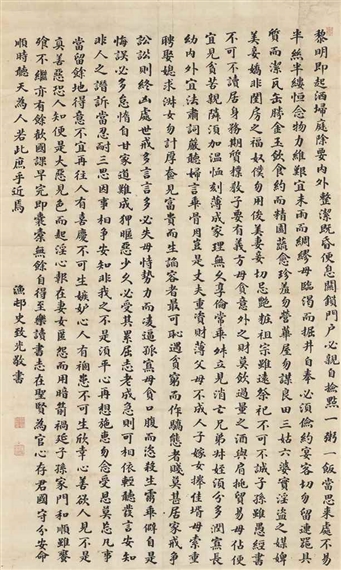 黎明即起洒埽庭除要内外整潔既昏便息關鎖門户必親自檢點一粥一飯當思来處不易
半絲半縷恒念物力維艱宜未雨而綢繆毋臨渴而掘井自奉必須儉約宴客切勿留連器具
質而潔瓦缶勝金玉飲食約而精園蔬愈珍羞勿營華屋勿謀良田三姑六婆實淫盗之媒婢
美妾嬌非閨房之福奴僕勿用俊美妻妾切忌艷粧祖宗雖遠祭祀不可不誠子孫雖愚經書
不可不讀居身務期質樸教子要有義方毋貪意外之財莫飲過量之酒與肩挑貿易毋佔便
宜見貧苦親鄰須加温恤刻薄成家理無久享倫常乖舛立見消亡兄弟叔姪須分多潤寡長
幼内外宜法肅詞嚴聽婦言乖骨肉豈是丈夫重資財薄父母不成人子嫁女擇佳壻毋索重
聘娶媳求淑女勿計厚奩見富貴而生諂容者最可恥遇貧窮而作驕態者賤莫甚居家戒爭
訟訟則終凶處世戒多言言多必失毋恃勢力而凌逼孤寡毋貪口腹而恣殺生禽乖僻自是
悔誤必多怠惰自甘家道難成狎暱惡少久必受其累屈志老成急則可相依輕聽發言安知
非人之譖訴當忍耐三思因事相爭安知非我之不是須平心再想施惠勿念受恩莫忘凡事
當留餘地得意不宜再往人有喜慶不可生嫉妒心人有禍患不可生欣幸心善欲人見不是
真善惡恐人知便是大惡見色而起淫心報在妻女匿怨而用暗箭禍延子孫家門和順雖饔
飱不繼亦有餘歡國課早完即囊橐無餘自得至樂讀書志在聖賢為官心存君國守分安命
順時聽天為人若此庶乎近焉
漁邨史致光敬書